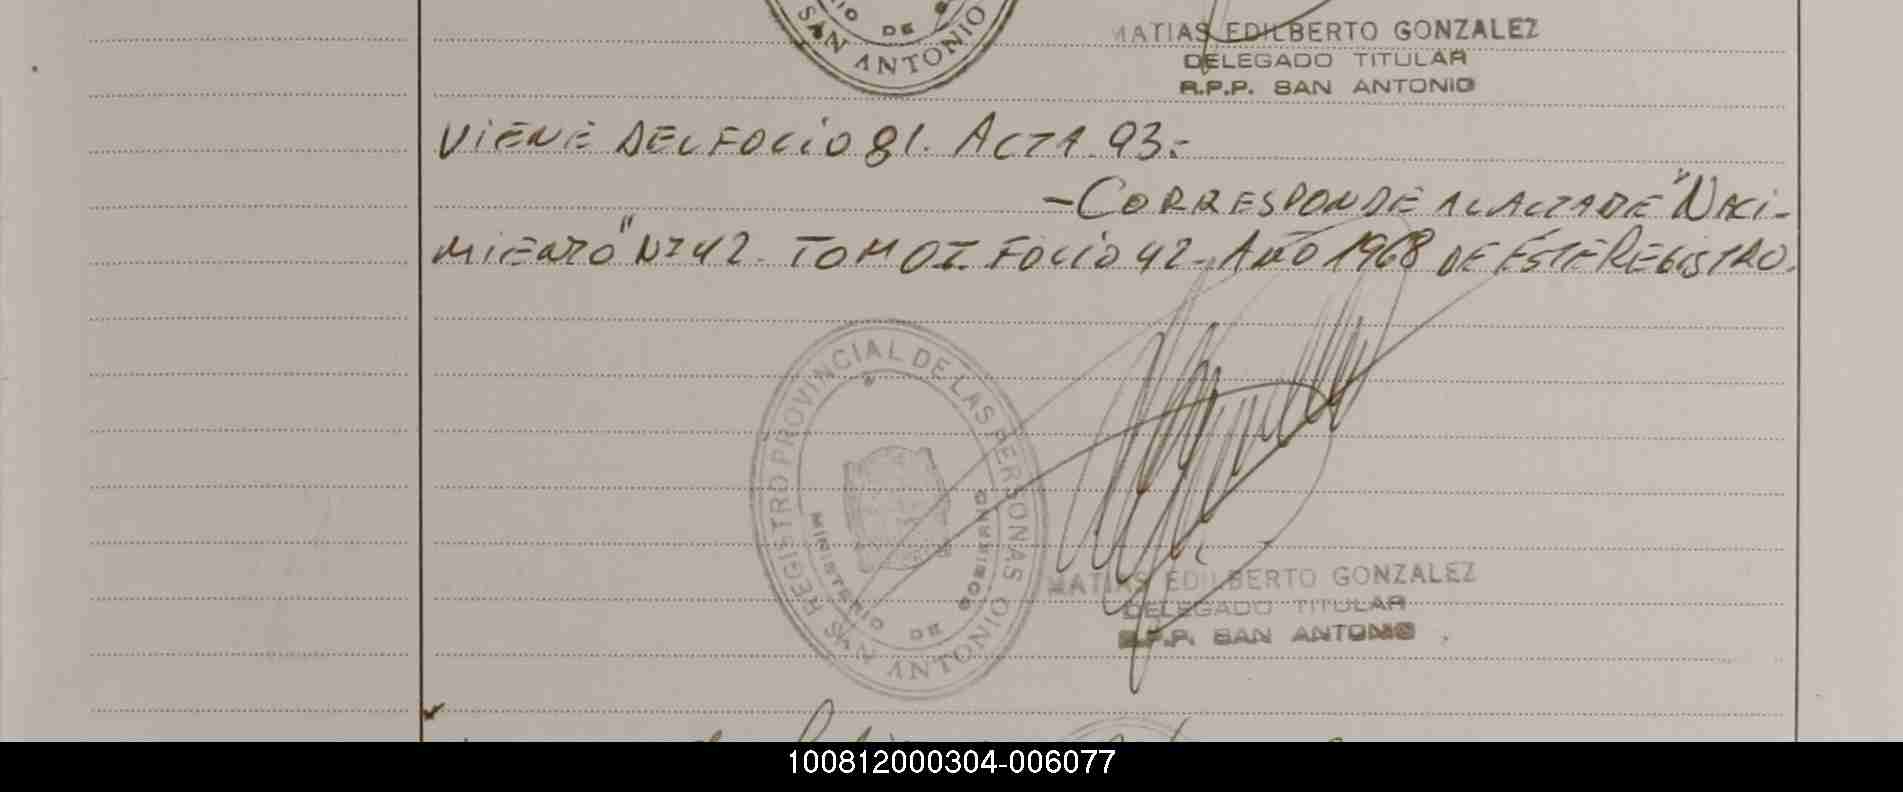 SAN ANTONIO
DE
MATIAS EDILBERTO GONZALEZ
DELEGADO TITULAR
R.P.P. SAN ANTONIO
VIENE DEL FOLIO 81. ACTA 93.-
-CORRESPONDE AL ACTA DE "NACI-
MIENTO" Nº 42. TOMO I. FOLIO 42. AÑO 1968 DE ÉSTE REGISTRO.
REGISTRO PROVINCIAL DE LAS PERSONAS
MINISTERIO DE GOBIERNO
SAN ANTONIO
MATIAS EDILBERTO GONZALEZ
DELEGADO TITULAR
R.P.P. SAN ANTONIO
100812000304-006077